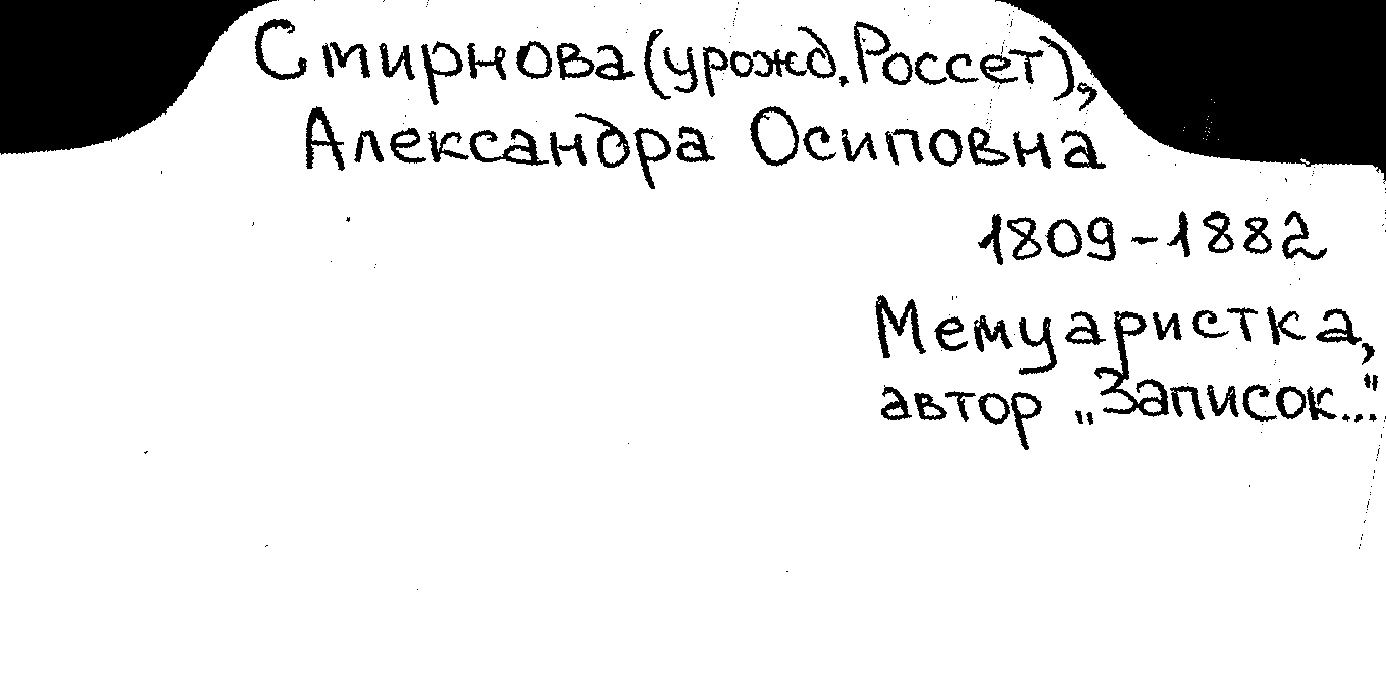 Смирнова (урожд. Россет),
Александра Осиповна
1809-1882
Мемуаристка,
автор „Записок..."